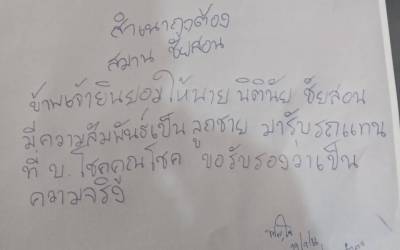 สำเนาถูกต้อง
สมาน ชัยสอน
ข้าพเจ้ายินยอมให้นาย นิตินัย ชัยสอน
มีความสัมพันธ์เป็น ลูกชาย มารับรถแทน
ที่ บ. โชคคูณโชค ขอรับรองว่าเป็น
ความจริง